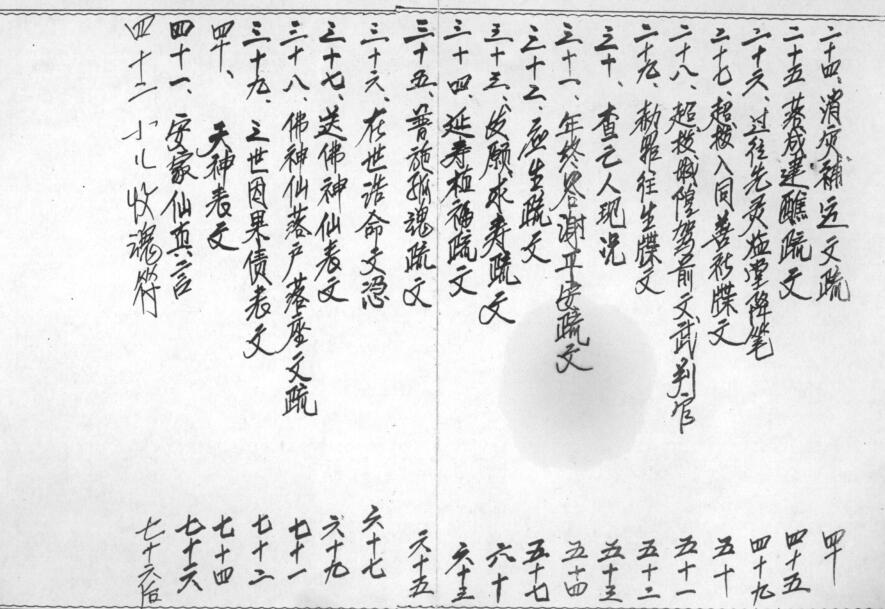 二十四、消灾補运文疏 四十
二十五 墓成建醮疏文 四十五
二十六、过往先灵临堂降笔 四十九
二十七、超拔入同善社牒文 五十
二十八、超拔城隍驾前文武判官 五十一
二十九、勅賜往生牒文 五十二
三十、查亡人现况 五十三
三十一、年终答谢平安疏文 五十四
三十二、应生疏文 五十七
三十三、发愿求寿疏文 六十
三十四 延寿植福疏文 六十三
三十五、普施孤魂疏文 六十五
三十六、在世诰命文 六十七
三十七、送佛神仙表文 六十九
三十八、佛神仙落户落座文疏 七十一
三十九、三世因果债表文 七十二
四十、天神表文 七十四
四十一、安家仙真言 七十六
四十二 小儿收魂符 七十六后